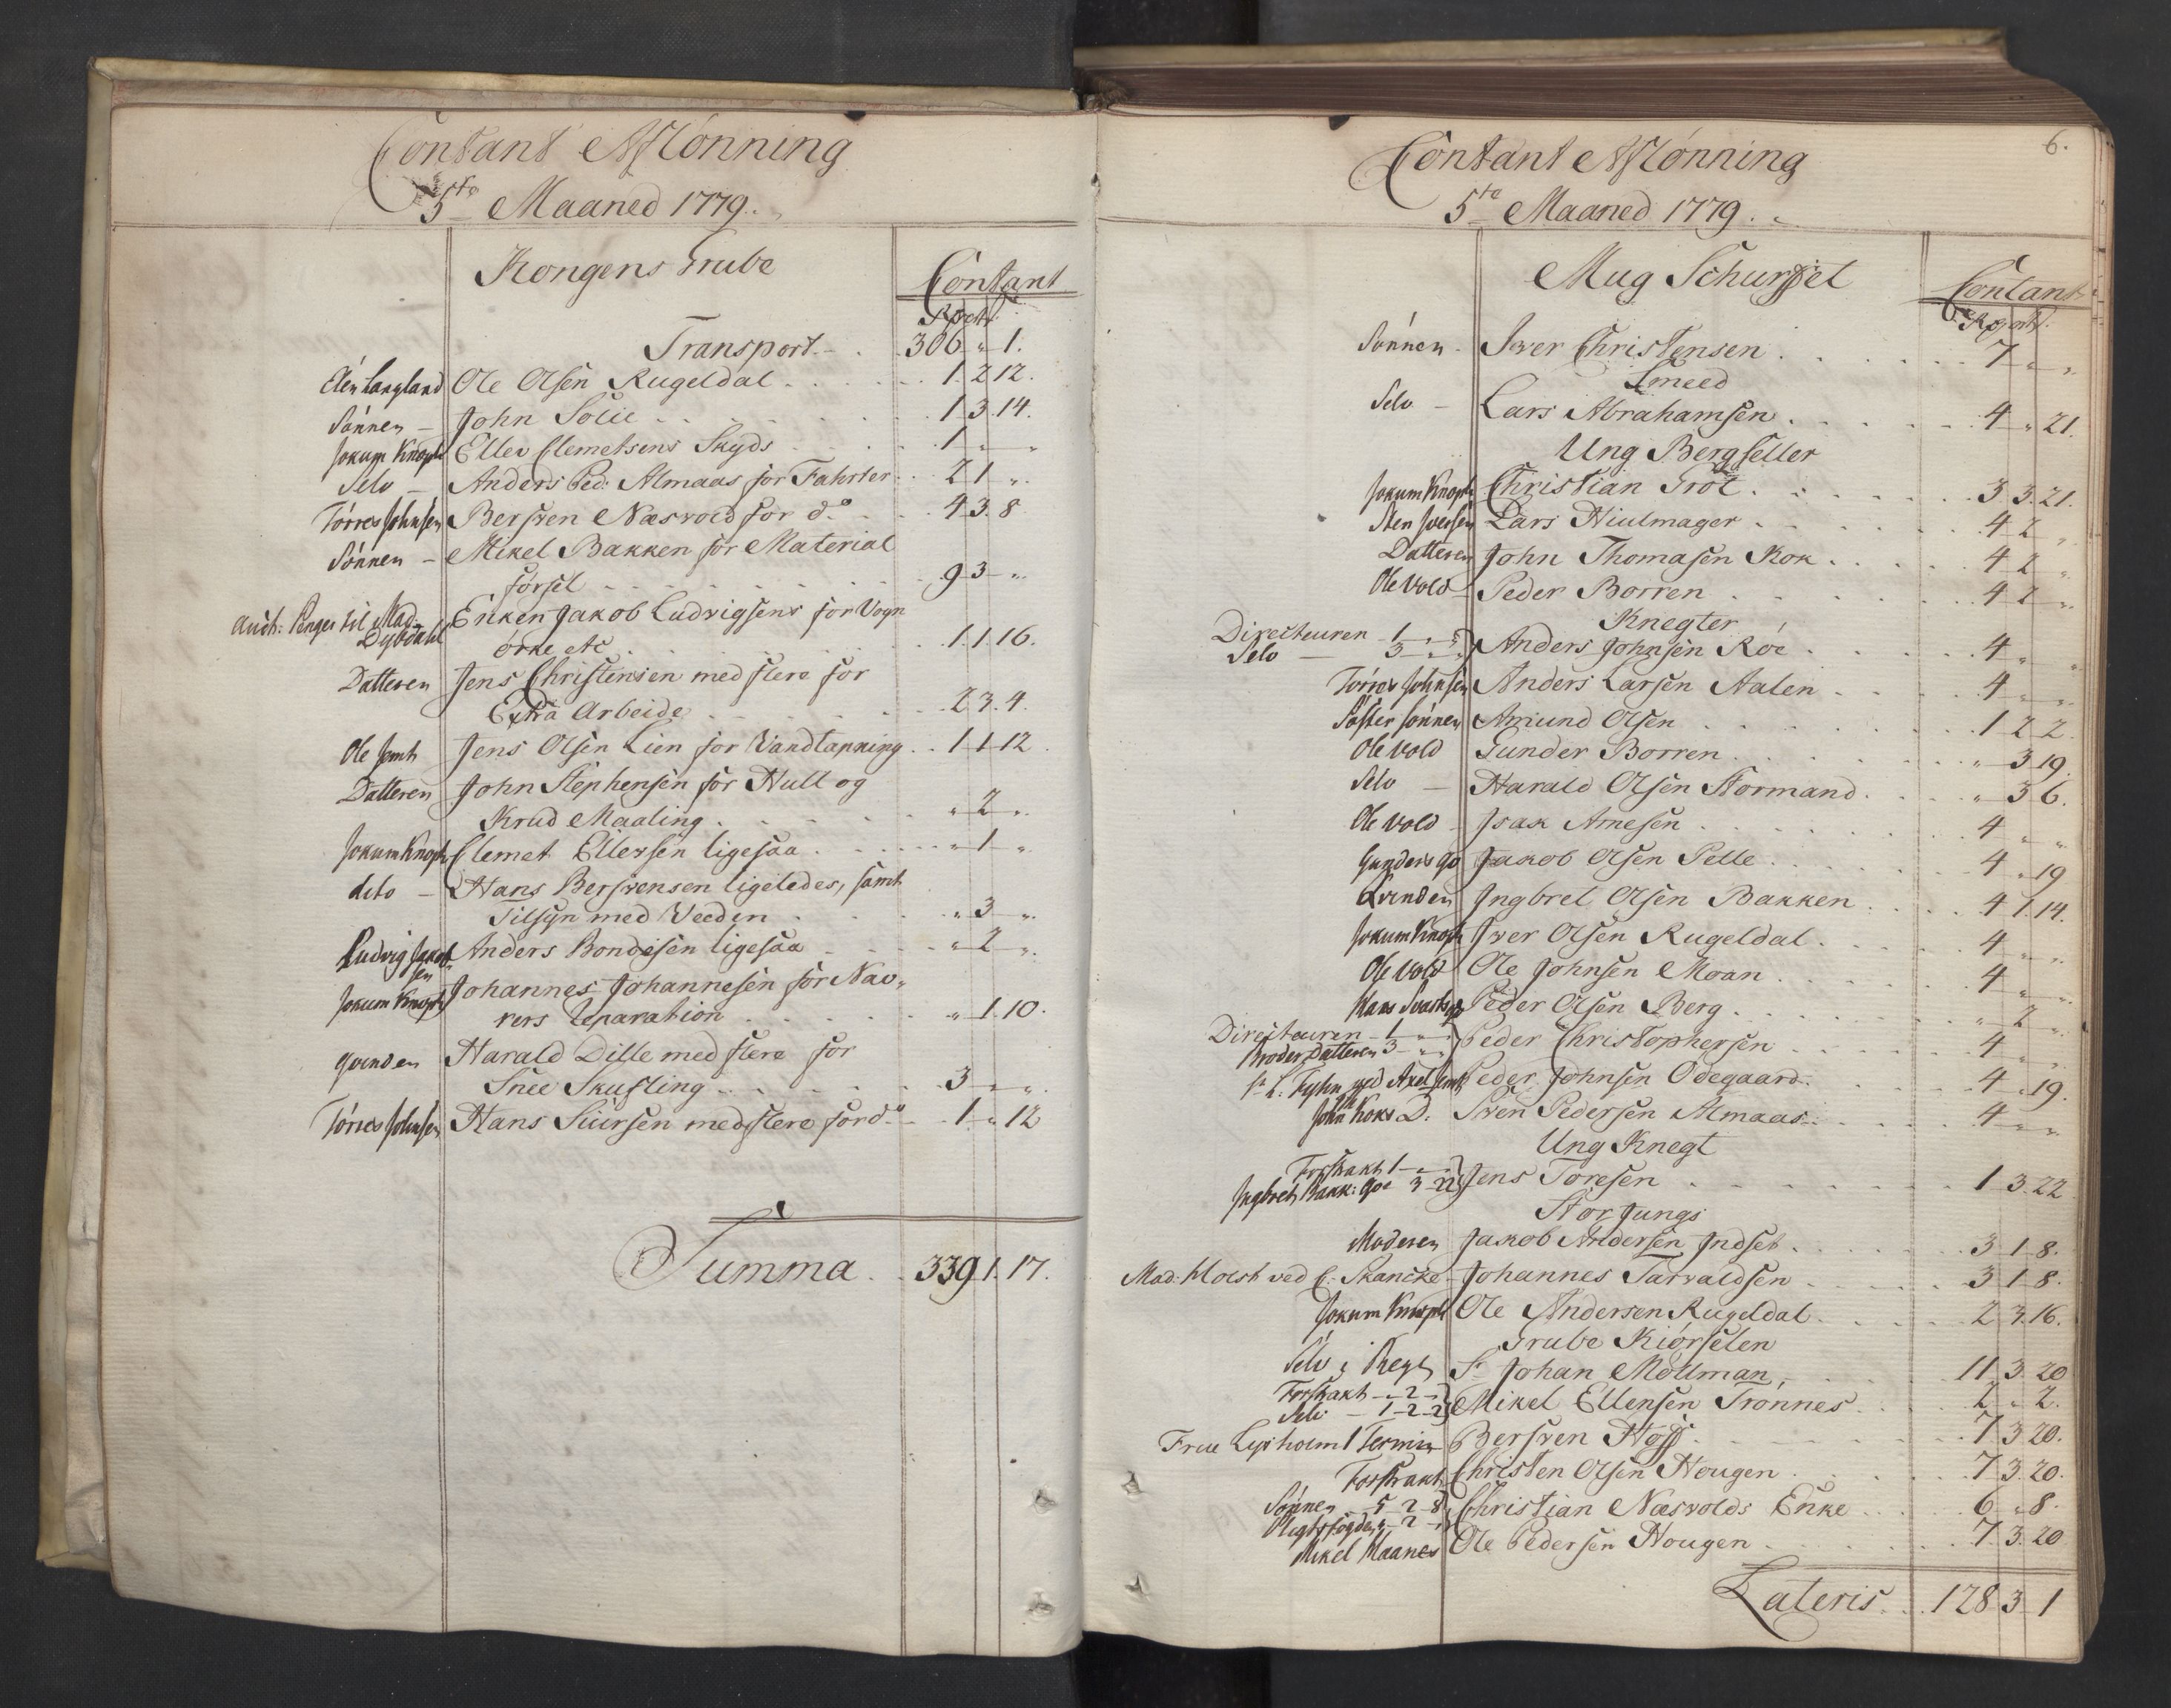 Contant Aflónning
5te Maaned 1779.
Kongens Grube
Contant
Rd ort
Transport - . 306 " 1.
Elen Langland Ole Olsen Rugeldal . . . 1. 2 12.
Sónnen - John Solie . . . 1 3. 14.
Jokum Knoph Ellev Clemetsens Skyds . . . 1 " "
Selv - Anders Ped: Almaas for Fahrter . . 2 1 ".
Tórres Johnsen Bersven Næsvold for do . . 4 3. 8
Sónnen - Mikel Bakken for Material
fórsel . . . 9 3 "
Auct: Penger til Mad. Dybdahl Enken Jakob Ludvigsens for Vogn
órke etc . . . 1. 1. 16.
Datteren Jens Christensen med flere for
Extra Arbeide . . . 2 3. 4.
Ole Jemt Jens Olsen Lien for Vandtapning . . 1 1 12.
Datteren John Stephensen for Hull og
Krud Maaling . . . " 2 ".
Jokum Knoph Clemet Ellevsen ligesaa . . . " 1 "
dito - Hans Bersvensen ligeledes, samt
Tilsyn med Veeden . . . " 3 ".
Ludvig Jakobsen Anders Bondesen ligesaa . . . " 2 ".
Jokum Knoph Johannes Johannesen for Nav-
vers Reparation . . . " 1. 10.
Qvinden Harald Dille med flere for
Snee Skufling . . . 3 " ".
Tórres Johnsen Hans Siursen med flere for do - 1 " 12
Summa . . 339 1. 17.
6.
Contant Aflónning
5te Maaned 1779.
Mug Schurfet
Contant
Rd ort
Sónnen - Iver Christensen . . . 7 " "
Smeed
Selv - Lars Abrahamsen . . . 4 " 21.
Ung Bergseller
Jokum Knoph Christian Tröt . . . 3 3. 21.
Sten Iversen Lars Hiulmager . . . 4 2 "
Datteren John Thomasen Kok . . . 4 2 "
Ole Vold Peder Borren . . . 4 2 "
Knegter
Directeuren 1 " "
Selv - 3 " " Anders Johnsen Róe . . . 4 " "
Tórres Johnsen Anders Larsen Aalen . . . 4 " "
Sóster Sónnen Amund Olsen . . . 1 2 2.
Ole Vold Gunder Borren . . . " 3 19.
Selv - Harald Olsen Stormand . . . " 3 6.
Ole Vold Isak Arnesen . . . 4 " "
Gunders Qv Jakob Olsen Pelle . . . 4 " 19
Qvinden Ingbret Olsen Bakken . . . 4 1. 14.
Jokum Knoph Iver Olsen Rugeldal . . . 4 " "
Ole Vold Ole Johnsen Moan . . . 4 " "
Hans Peder Olsen Berg . . . " 2 "
Directeuren - 1 " "
Broder Datteren 3 " " Peder Christophersen . . . 4 " "
Sr L. ved Axel Jemt Peder Johnsen Odegaard . . . 4 " 19.
John Koks D. Sven Pedersen Almaas . . . 4 " "
Ung Knegt
Forstrakt 1 " "
Ingbret Bakk: Qve " 3 22 Jens Toresen . . . 1 3. 22
Stor Jungs
Moderen Jakob Andersen Indset . . . 3 1 8.
Mad: Holst ved E: Skancke Johannes Tarvaldsen . . . 3 1 8.
Jokum Knoph Ole Andersen Rugeldal . . . 2 3. 16.
Grube Kiórselen
Selv i Regn Sr Johan Möllman . . . 11 3 20
Forstrakt - " 2 "
Selv - 1 2 2 Mikel Ellensen Trónnes . . . 2 " 2.
Frue Lysholm 1 Termin Bersven Hoff . . . 7 3 20.
Forstrakt Christen Olsen Hougen . . . 7 3. 20.
Sónnen 5 2 8
Pligtsfogden " 2 " Christian Næsvolds Enke . . . 6 " 8.
Mikel Maanes Ole Pedersen Hougen . . . 7 3. 20
Lateris . . 128 3 1